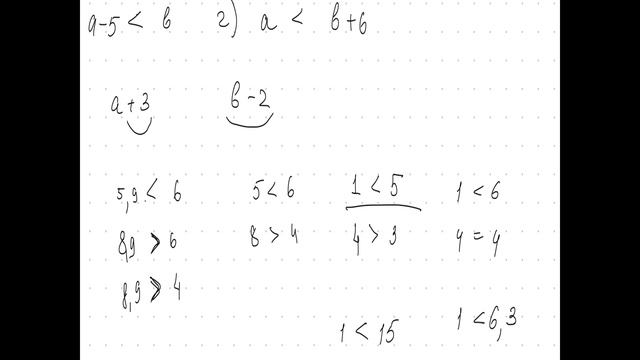 a-5 < b 2) a < b+6
a+3 b-2
5,9 < 6 5 < 6 1 < 5 1 < 6
8,9 > 6 8 > 4 4 > 3 4 = 4
8,9 > 4
1 < 15 1 < 6,3